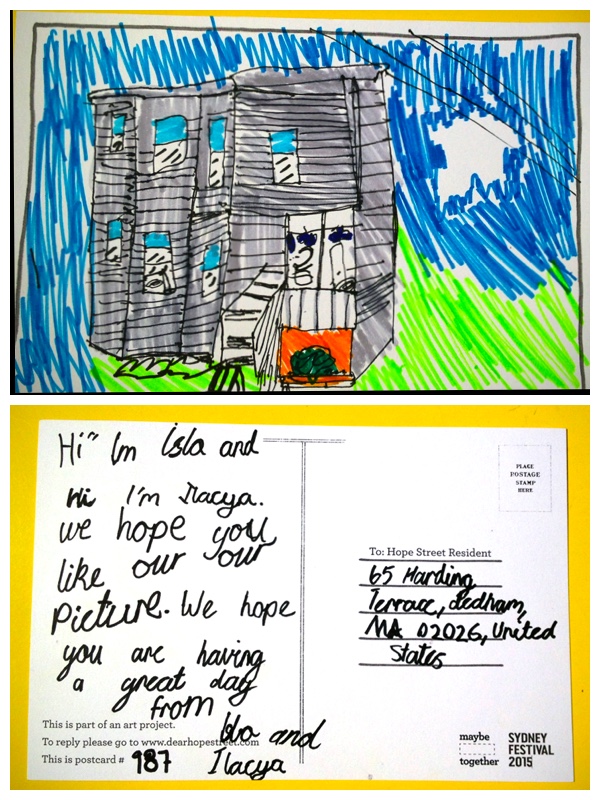 Hi" Im Isla and
Hi I'm Ilacya.
we hope you
like our our
picture. We hope
you are having
a great day
from
Isla and
Ilacya
This is part of an art project.
To reply please go to www.dearhopestreet.com
This is postcard # 987
PLACE
POSTAGE
STAMP
HERE
To: Hope Street Resident
65 Harding
Terrace, Dedham,
MA 02026, United
States
maybe
together
SYDNEY
FESTIVAL
2015